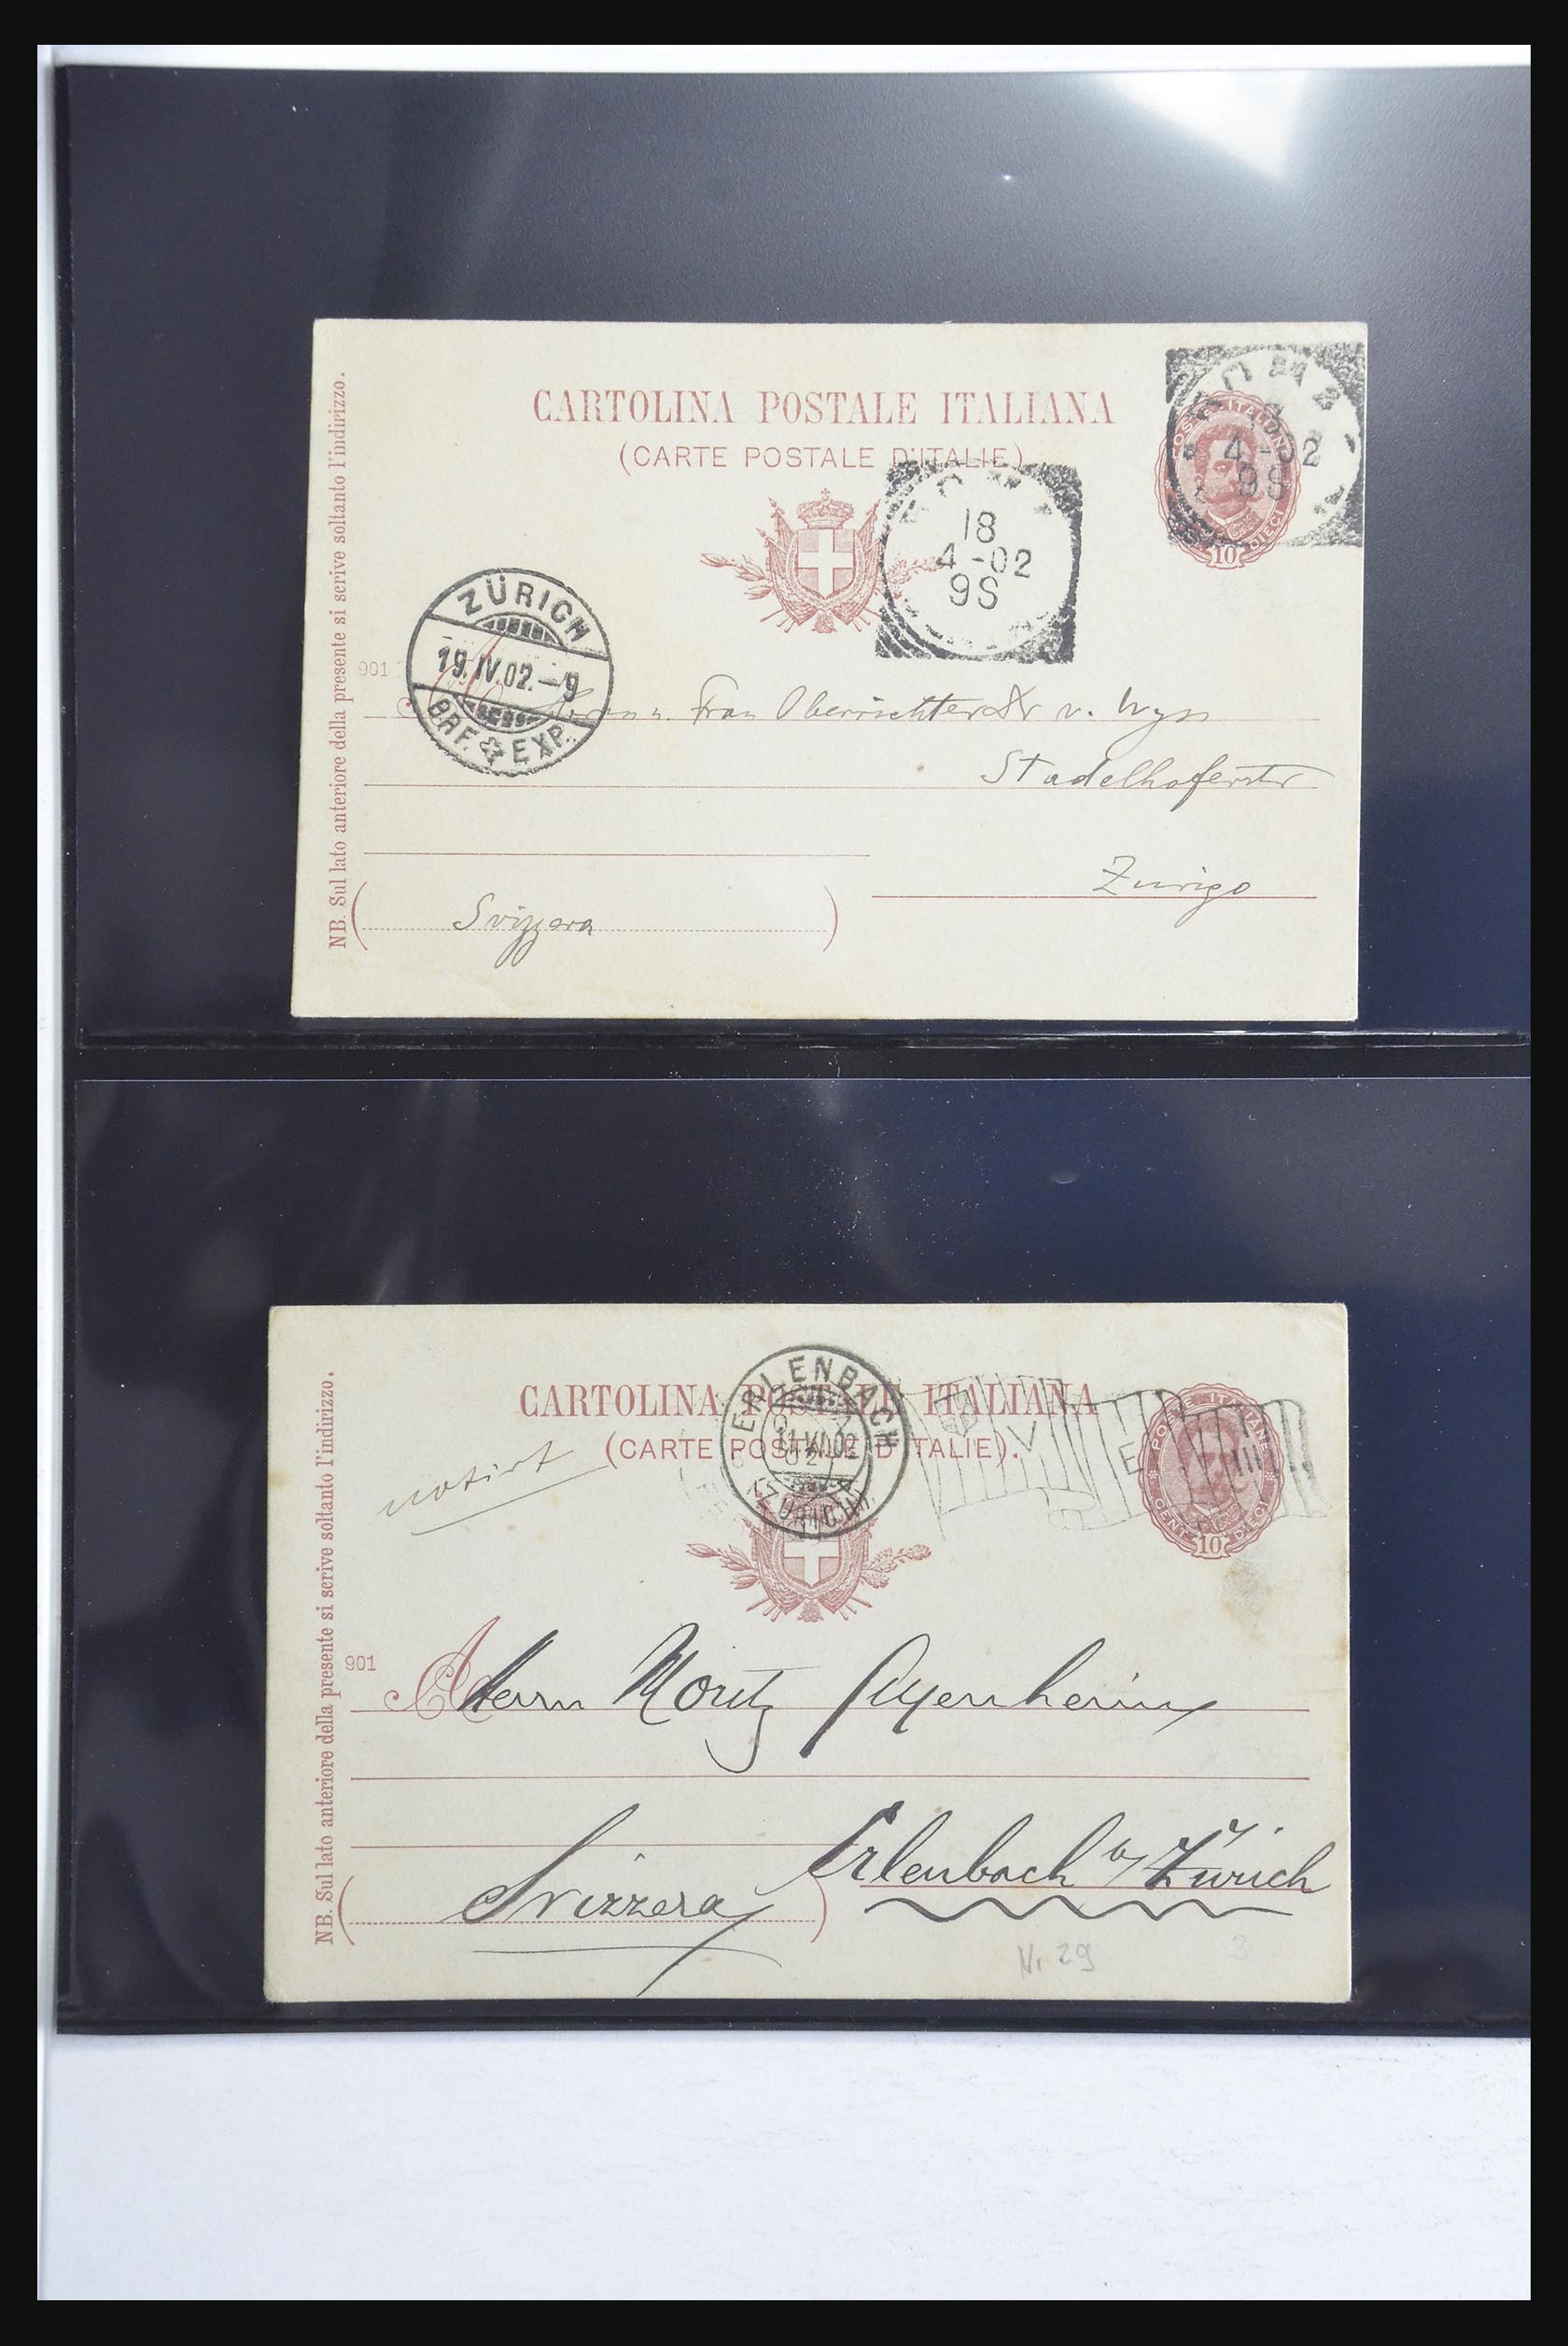 CARTOLINA POSTALE ITALIANA
(CARTE POSTALE D'ITALIE)
ROMA
4-02
9S
POSTE ITALIANE
DIECI
10
18
4-02
9S
ZÜRICH
19.IV.02.-9
BRF. EXP.
901
u. Frau Oberrichter Dr v. Wyss
Stadelhoferstr
Zurigo
(Svizzera)
NB. Sul lato anteriore della presente si scrive soltanto l'indirizzo.
CARTOLINA POSTALE ITALIANA
(CARTE POSTALE D'ITALIE).
ERLENBACH
11.VI.02
(ZÜRICH)
POSTE ITALIANE
CENT. DIECI
10
notirt
901
A Herrn Moritz
Erlenbach b/ Zürich
(Svizzera)
Nr 29
3
NB. Sul lato anteriore della presente si scrive soltanto l'indirizzo.